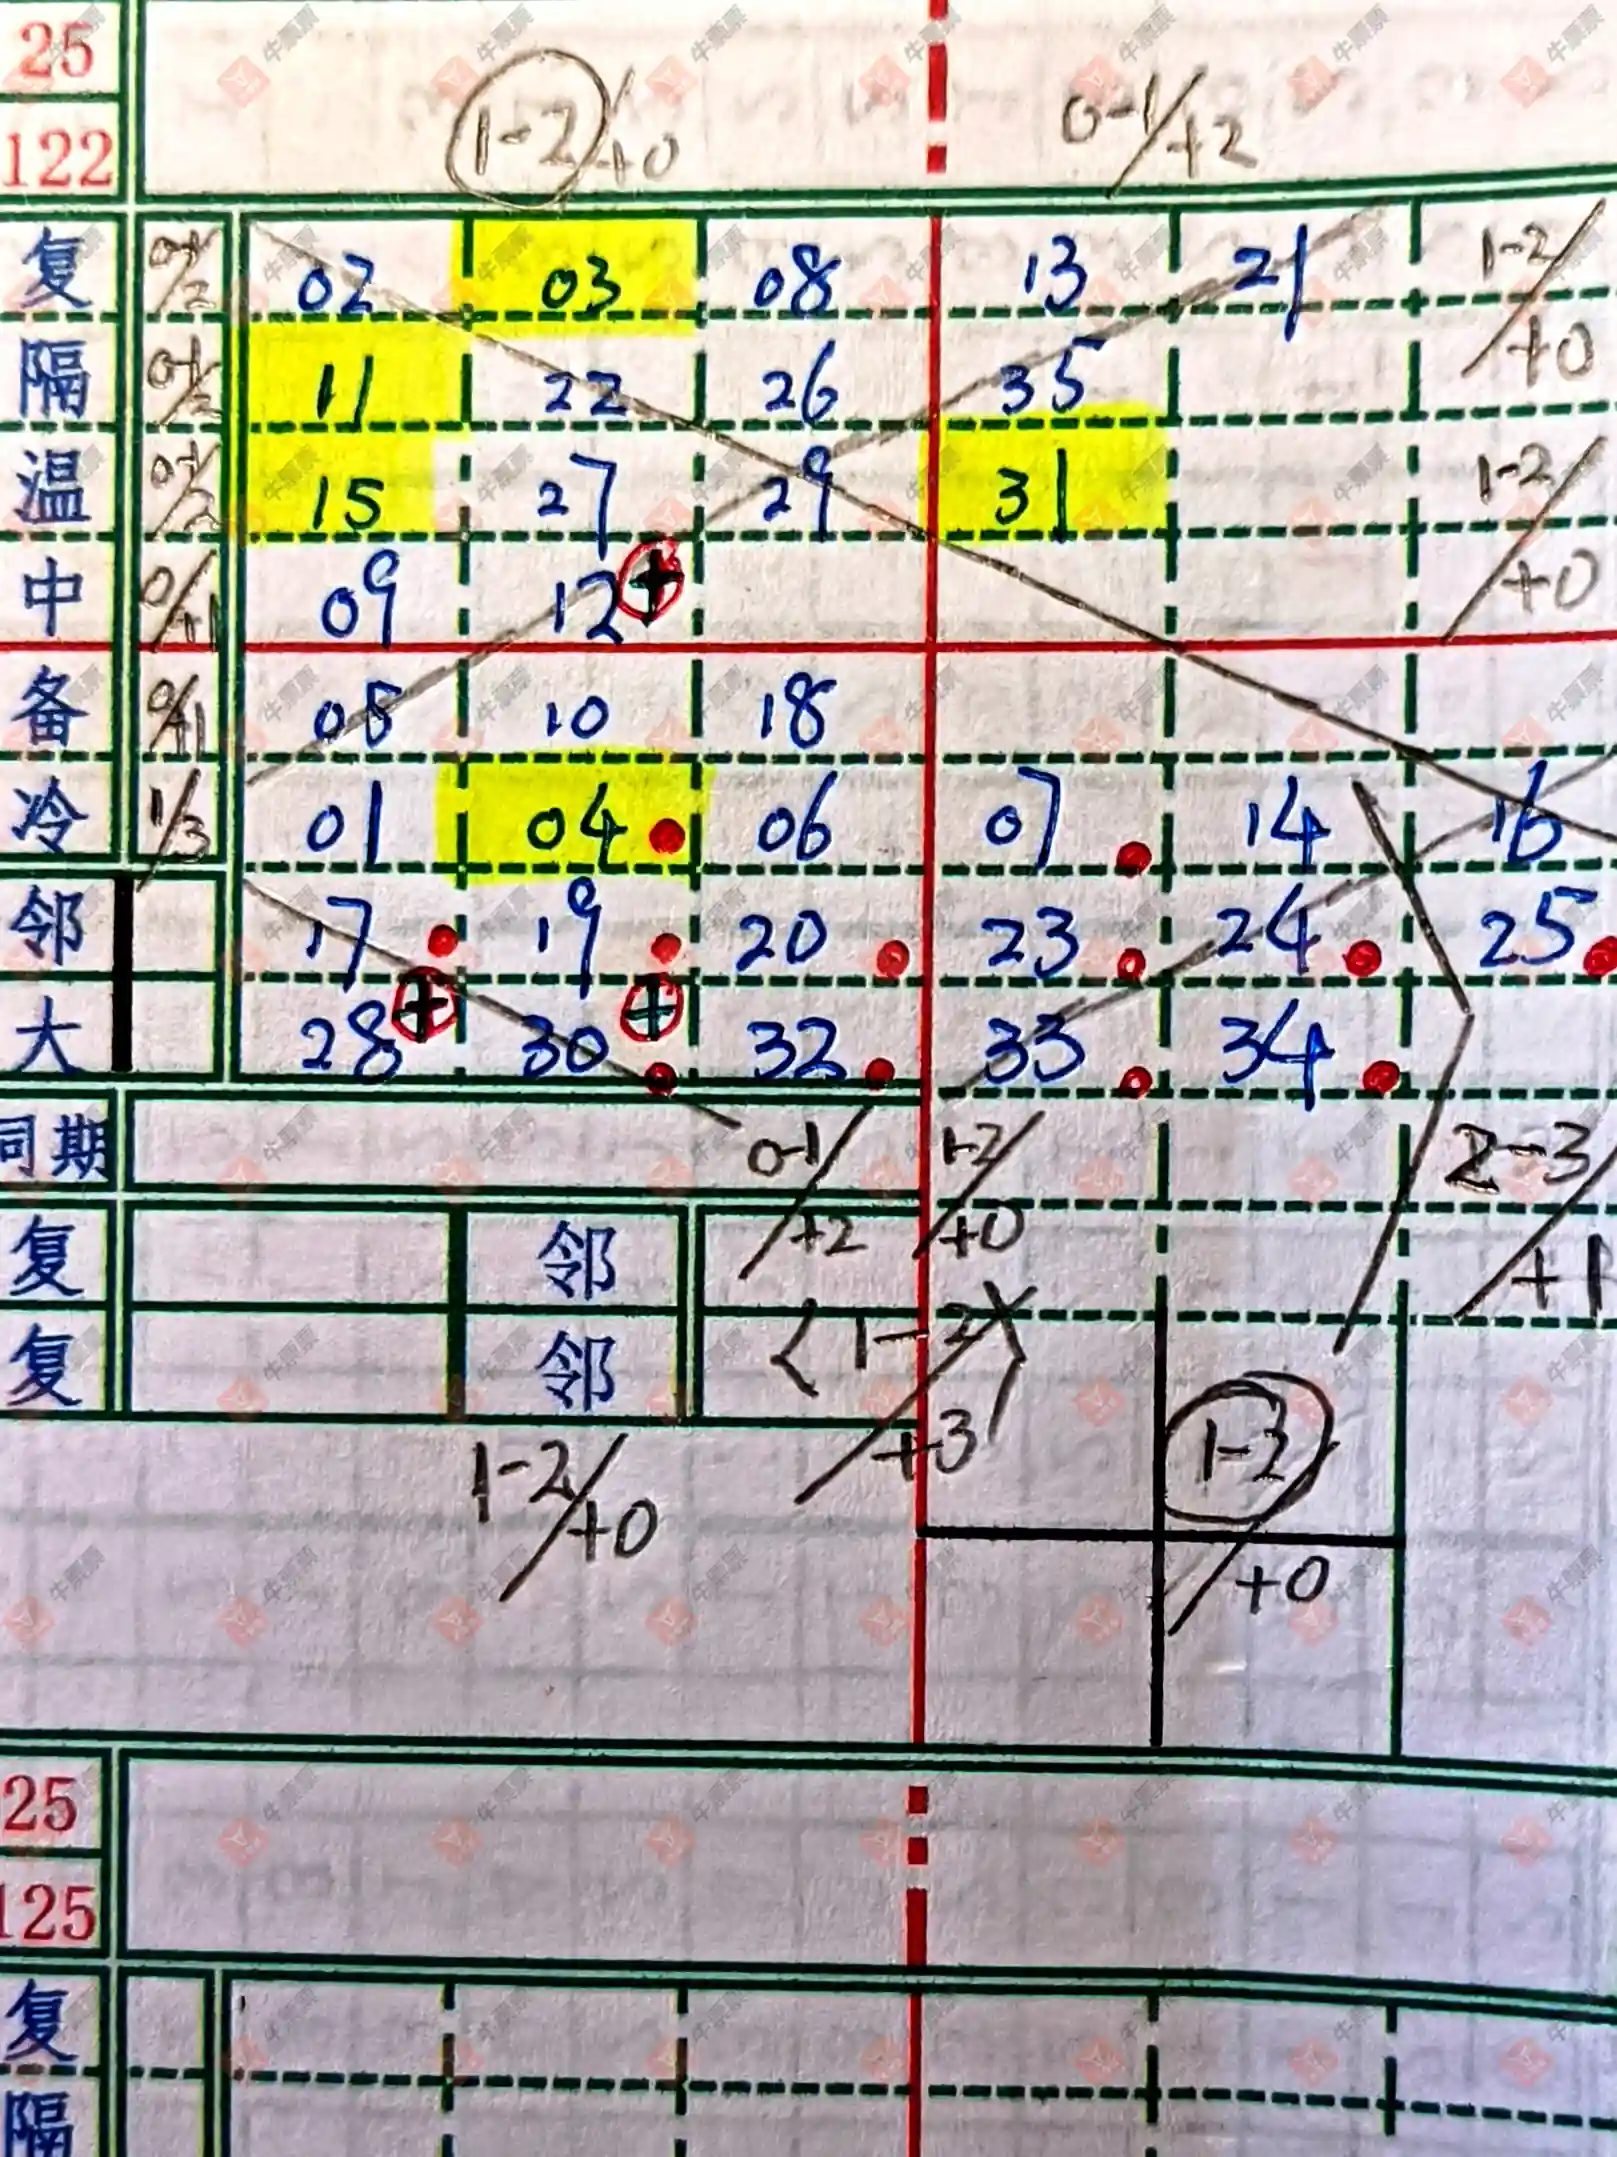 25
122
1-2/+0
0-1/+2
复 0-1/2 02 03 08 13 21 1-2/+0
隔 0-1/2 11 22 26 35
温 0-1/2 15 27 29 31 1-2/+0
中 0/+1 09 12
备 0/+1 05 10 18
冷 1/3 01 04 06 07 14 16
邻 17 19 20 23 24 25
大 28 30 32 33 34
同期 0-1/+2 1-2/+0 2-3/+1
复 邻
复 邻 1-2/+3
1-2/+0 1-3/+0
25
125
复
隔
牛票票